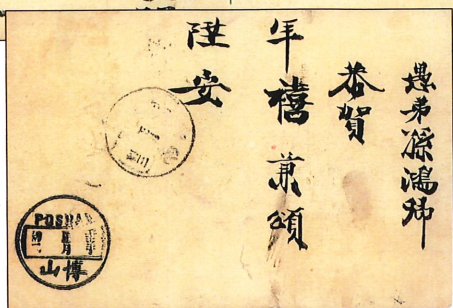 愚弟孫鴻卿
恭賀
年禧兼頌
陞安
POSHAN
博山